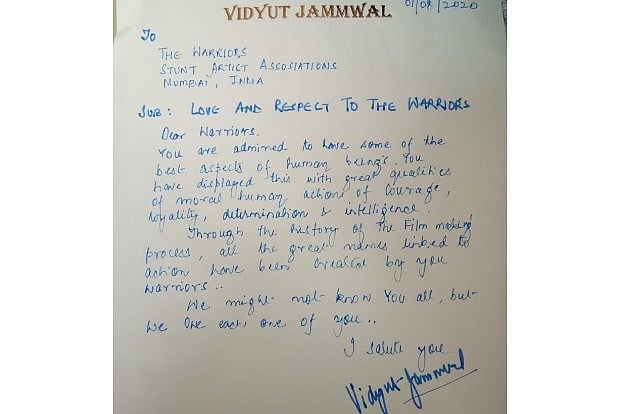 VIDYUT JAMMWAL
01/08/2020
To
THE WARRIORS
STUNT ARTIST ASSOSIATIONS
MUMBAI, INDIA
SUB: LOVE AND RESPECT TO THE WARRIORS
Dear Warriors,
You are admired to have some of the
best aspects of human being's. You
have displayed this with great qualities
of moral human actions of courage,
loyality, determination & intelligence.
Through the history of the Film making
process, all the great names linked to
action have been created by you
warriors..
We might not know You all, but
we owe each one of you..
I salute you
Vidyut Jammwal